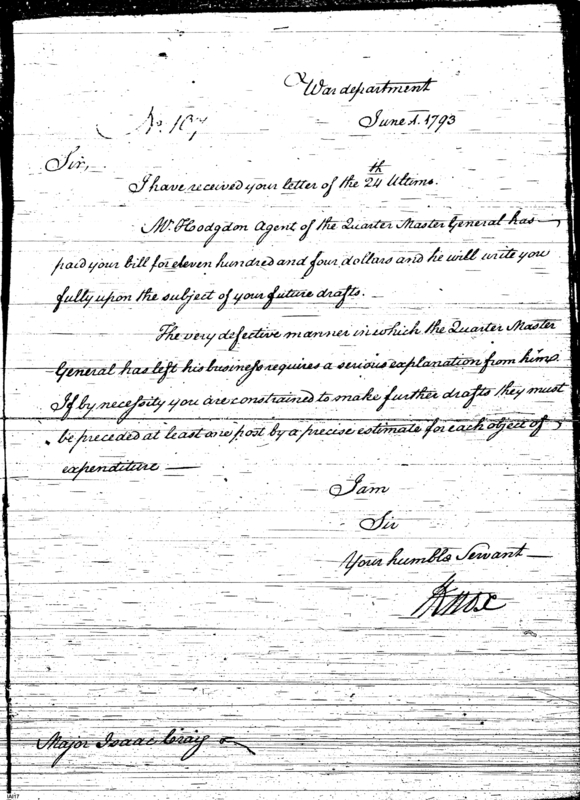 War department
No. 107
June 1. 1793
Sir,
I have received your letter of the 24th Ultimo.
Mr. Hodgdon Agent of the Quarter Master General has
paid your bill for eleven hundred and four dollars and he will write you
fully upon the subject of your future drafts.
The very defective manner in which the Quarter Master
General has left his business requires a serious explanation from him.
If by necessity you are constrained to make further drafts they must
be preceded at least one post by a precise estimate for each object of
expenditure —
I am
Sir
Your humble Servant —
HKnox
Major Isaac Craig